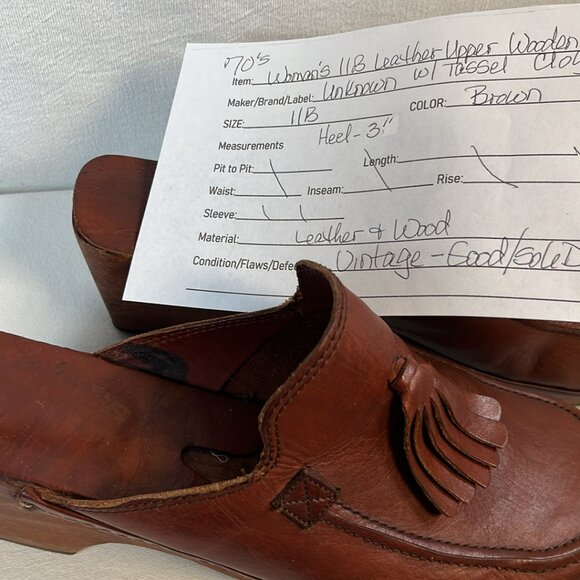 '70's
Item: Woman's 11B Leather Upper Wooden
Maker/Brand/Label: Unknown w/ Tassel Clo
SIZE: 11B COLOR: Brown
Measurements Heel - 3"
Pit to Pit: Length:
Waist: Inseam: Rise:
Sleeve:
Material: Leather & Wood
Condition/Flaws/Defe Vintage - Good/Sole D